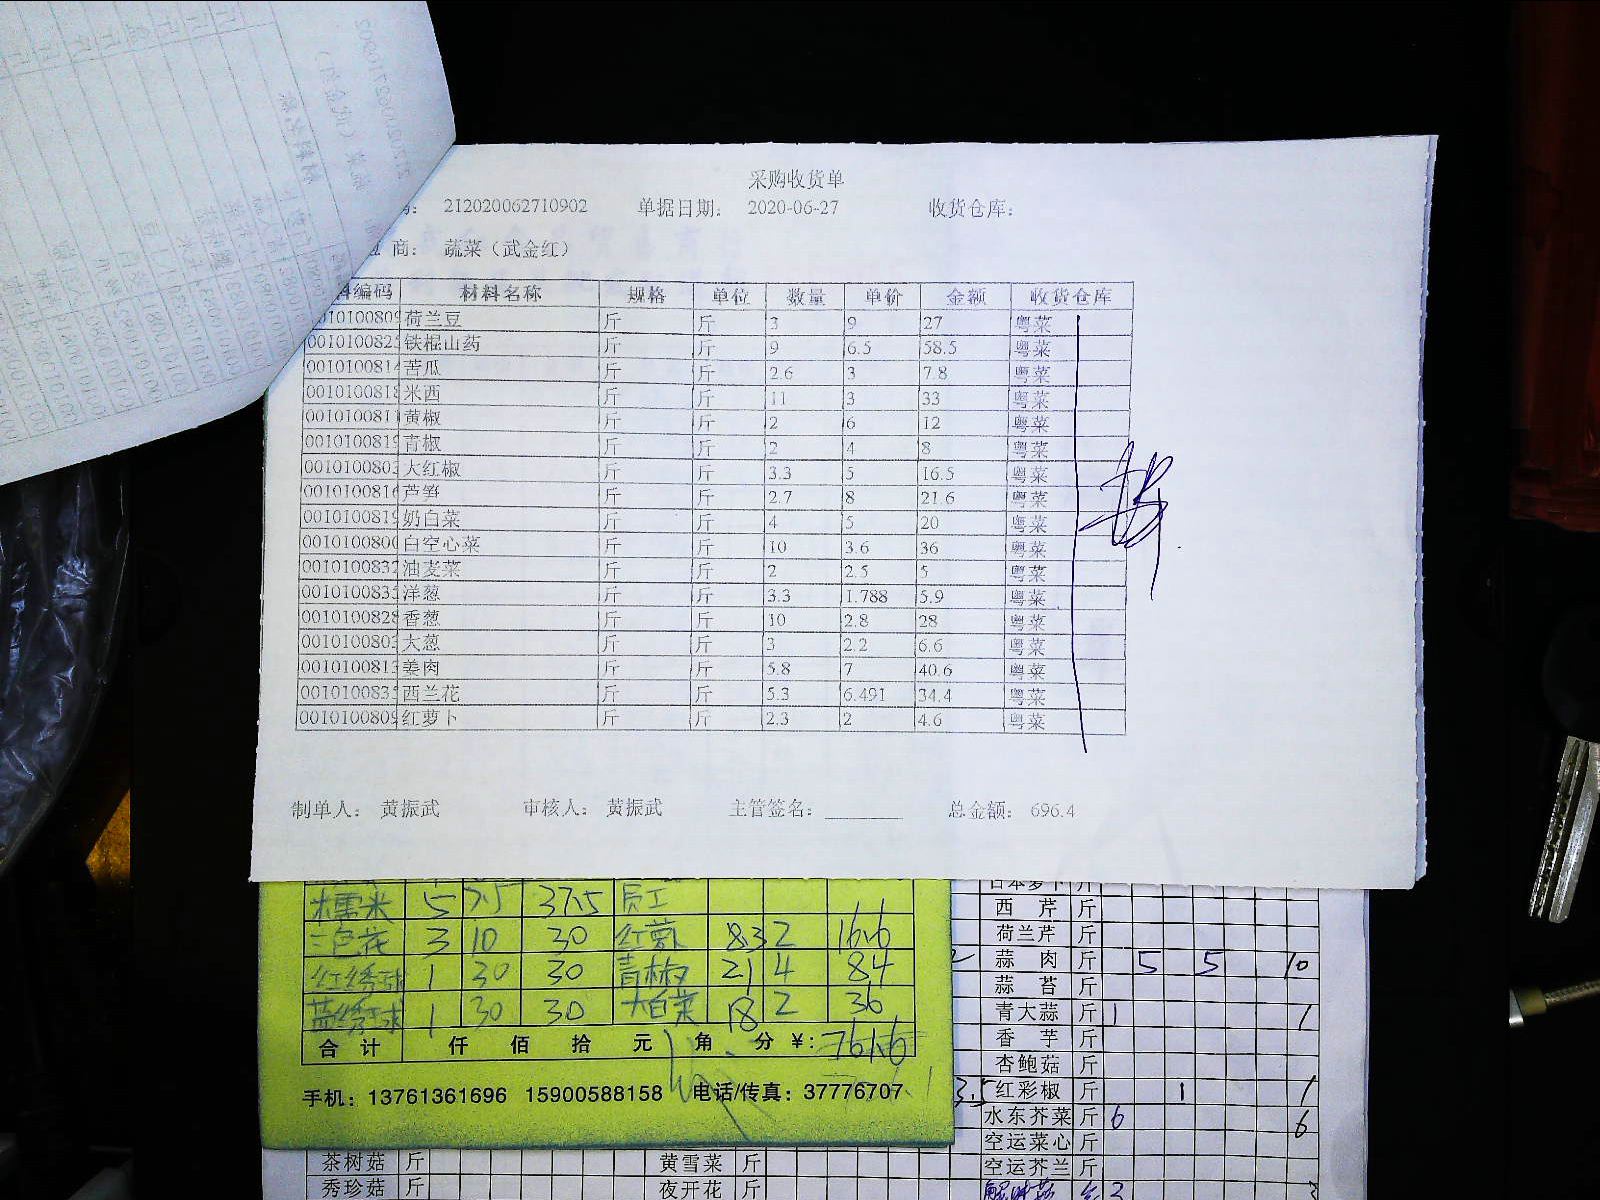 采购收货单
码： 212020062710902 单据日期： 2020-06-27 收货仓库：
商： 蔬菜（武金红）
料编码 材料名称 规格 单位 数量 单价 金额 收货仓库
0010100809 荷兰豆 斤 斤 3 9 27 粤菜
0010100825 铁棍山药 斤 斤 9 6.5 58.5 粤菜
0010100814 苦瓜 斤 斤 2.6 3 7.8 粤菜
0010100818 米西 斤 斤 11 3 33 粤菜
0010100811 黄椒 斤 斤 2 6 12 粤菜
0010100819 青椒 斤 斤 2 4 8 粤菜
0010100803 大红椒 斤 斤 3.3 5 16.5 粤菜
0010100816 芦笋 斤 斤 2.7 8 21.6 粤菜
0010100819 奶白菜 斤 斤 4 5 20 粤菜
0010100800 白空心菜 斤 斤 10 3.6 36 粤菜
0010100832 油麦菜 斤 斤 2 2.5 5 粤菜
0010100835 洋葱 斤 斤 3.3 1.788 5.9 粤菜
0010100828 香葱 斤 斤 10 2.8 28 粤菜
0010100803 大葱 斤 斤 3 2.2 6.6 粤菜
0010100813 姜肉 斤 斤 5.8 7 40.6 粤菜
0010100835 西兰花 斤 斤 5.3 6.491 34.4 粤菜
0010100809 红萝卜 斤 斤 2.3 2 4.6 粤菜
制单人： 黄振武 审核人： 黄振武 主管签名： 总金额： 696.4
糯米 5 7.5 37.5 员工
三色花 3 10 30 红萝卜 8.3 2 16.6
红绣球 1 30 30 青椒 21 4 84
蓝绣球 1 30 30 大白菜 18 2 36
合 计 仟 佰 拾 元 角 分 ¥: 761.6
手机：13761361696 15900588158 电话/传真：37776707
日本萝卜 斤
西 芹 斤
荷兰芹 斤
蒜 肉 斤 5 5 10
蒜 苔 斤
青大蒜 斤 1 1
香 芋 斤
杏鲍菇 斤
3.5 红彩椒 斤 1 1
水东芥菜 斤 6 6
空运菜心 斤
茶树菇 斤 黄雪菜 斤 空运芥兰 斤
秀珍菇 斤 夜开花 斤